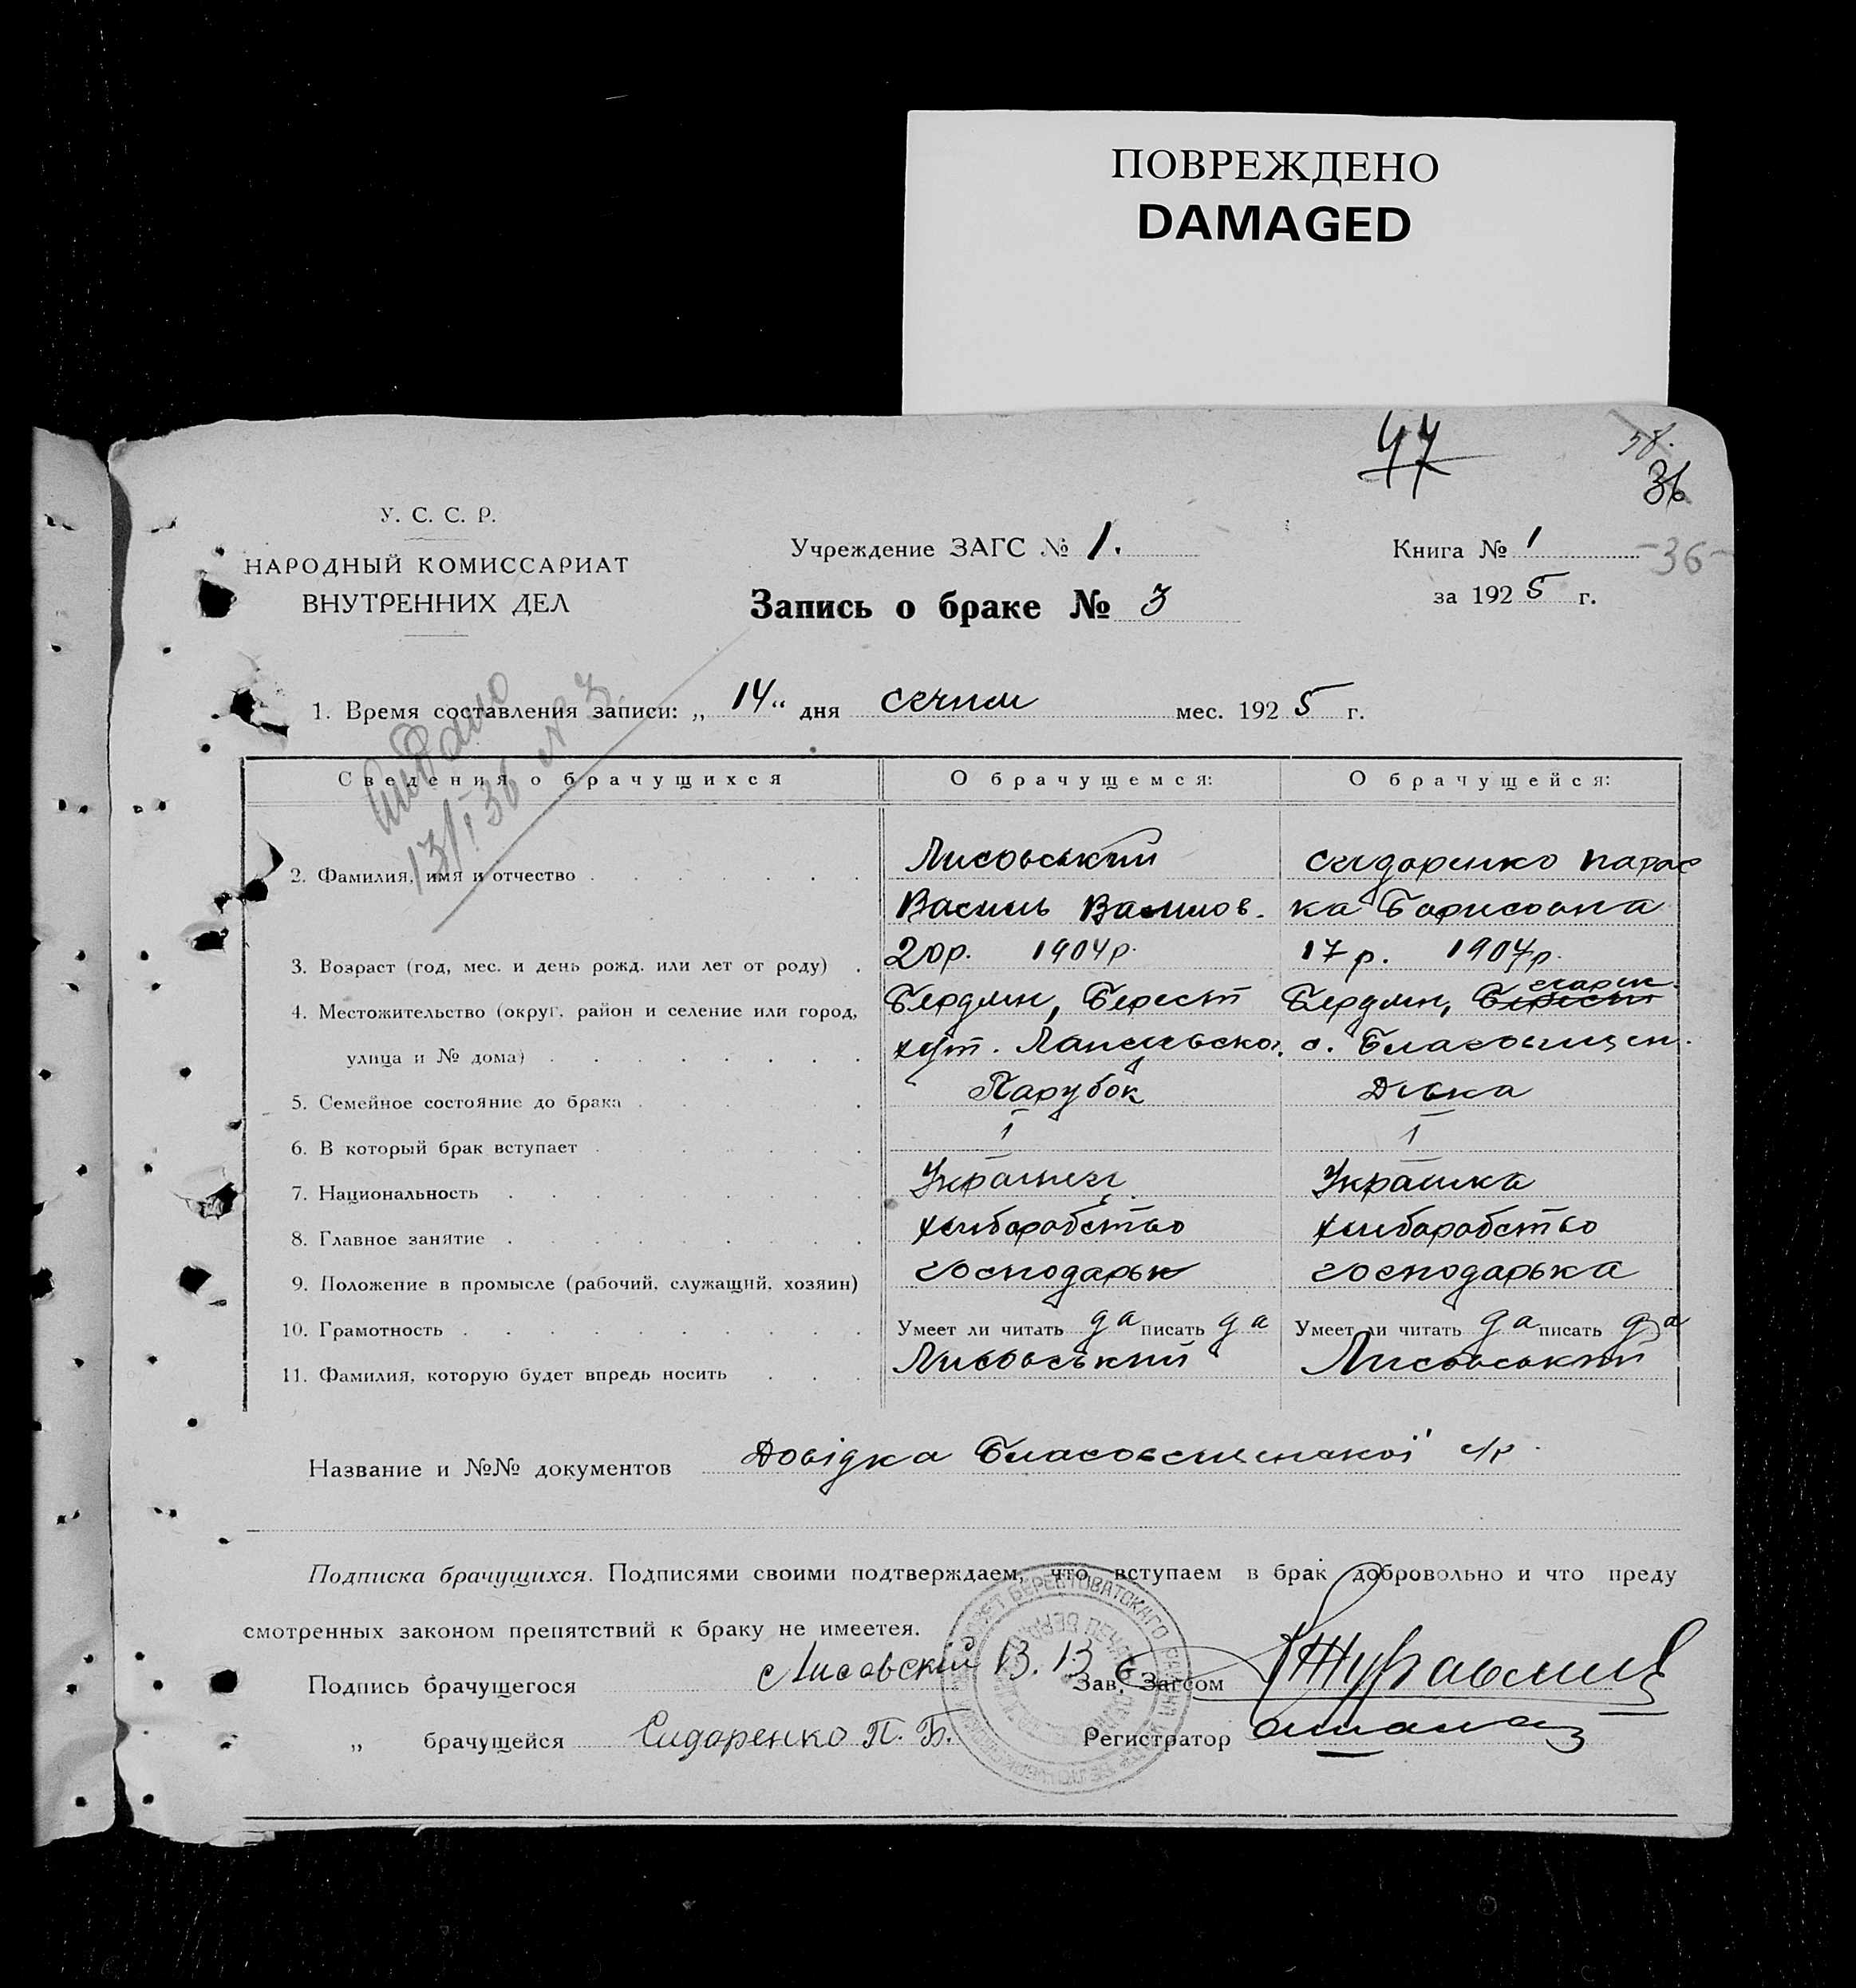 ПОВРЕЖДЕНО
DAMAGED
47
58.
36
У. С. С. Р.
НАРОДНЫЙ КОМИССАРИАТ
ВНУТРЕННИХ ДЕЛ
Учреждение ЗАГС № 1.
Книга № 1
-36-
Запись о браке № 3
за 1925 г.
Видано
13/I 36 № 3
1. Время составления записи: „14“ дня січня мес. 1925 г.
Сведения о брачущихся О брачущемся: О брачущейся:
2. Фамилия, имя и отчество Лисовський Сидоренко Парас
Василь Васильов. ка Борисовна
3. Возраст (год, мес. и день рожд. или лет от роду) 20 р. 1904 р. 17 р. 1907 р.
4. Местожительство (округ, район и селение или город, Бердян, Берест Бердян, Берест
улица и № дома) хут. с. Благовищен.
5. Семейное состояние до брака Парубок Дівка
6. В который брак вступает I I
7. Национальность Українец Українка
8. Главное занятие хлиборобство хлиборобство
9. Положение в промысле (рабочий, служащий, хозяин) господарь господарька
10. Грамотность Умеет ли читать да писать да Умеет ли читать да писать да
11. Фамилия, которую будет впредь носить Лисовський Лисовський
Название и №№ документов Довідка Благовещенскої с/р.
Подписка брачущихся. Подписями своими подтверждаем, что вступаем в брак добровольно и что преду
смотренных законом препятствий к браку не имеется.
Подпись брачущегося Лисовский В. В. Зав. Загсом
„ брачущейся Сидоренко П. Б. Регистратор
БЕРЕСТОВАТСКОГО